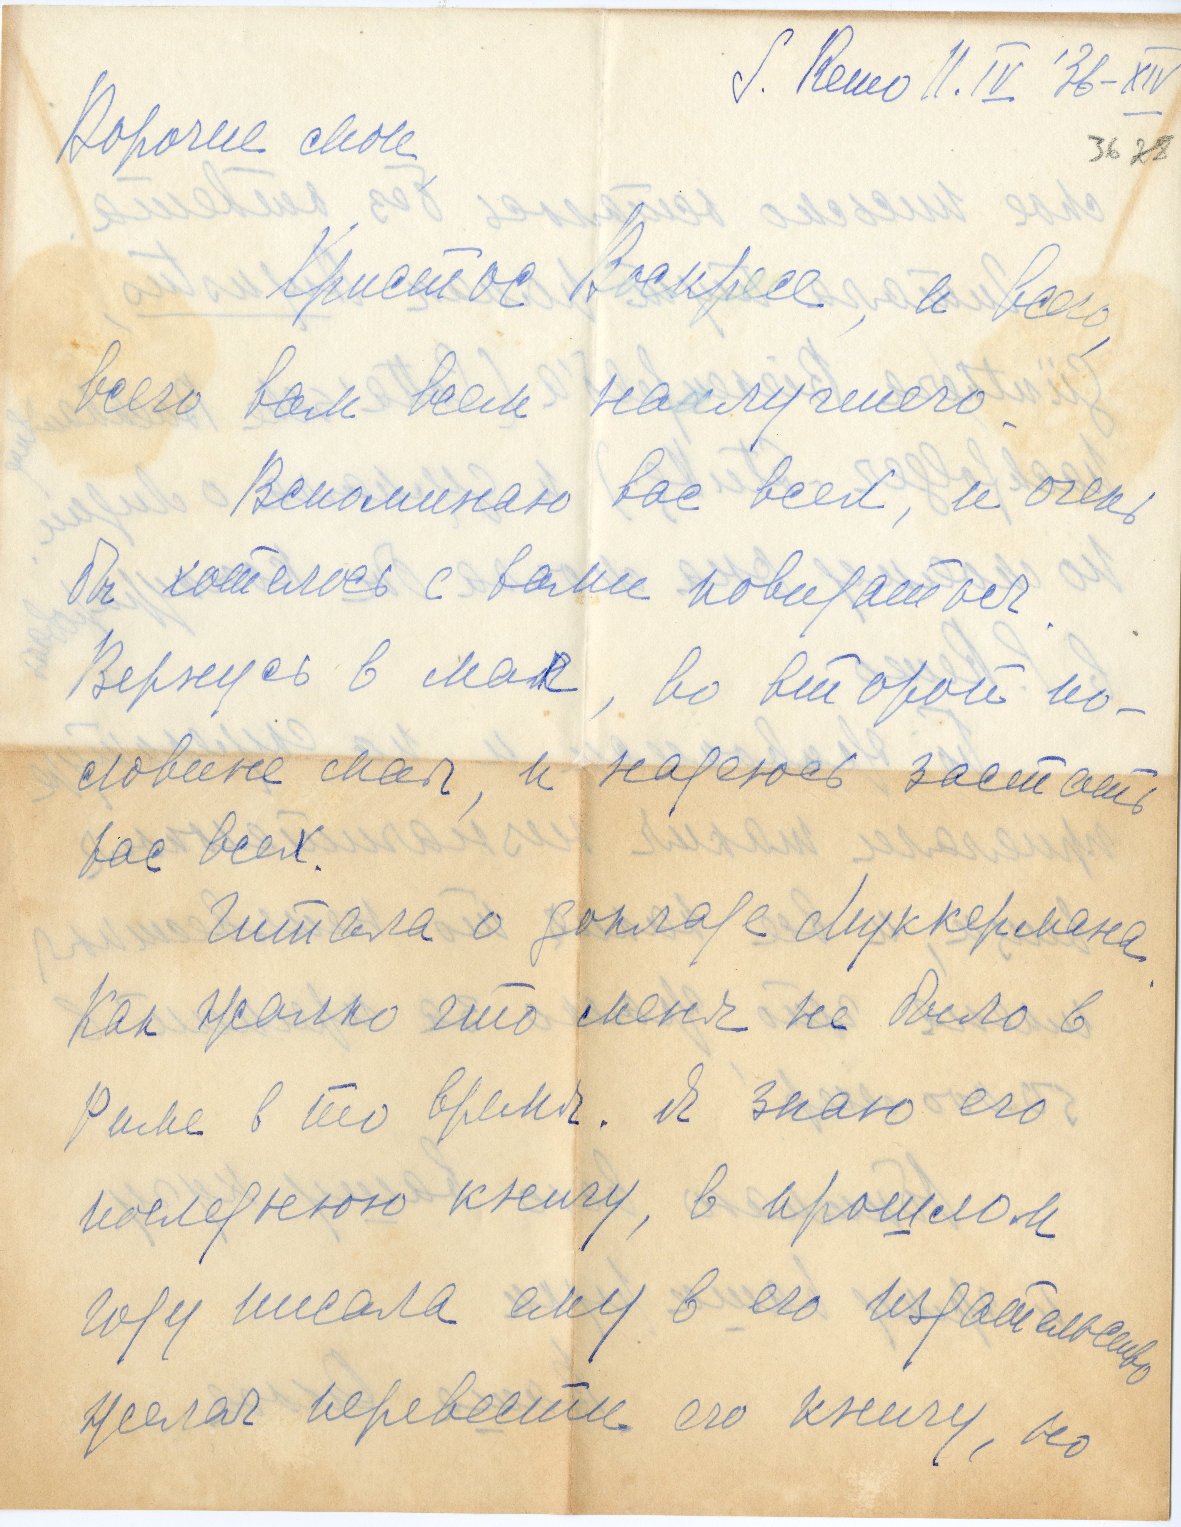 S. Remo 11. IV '36-XIV
36 28
Дорогие мои,
Христос Воскресе, и всего,
всего вам всем наилучшего.
Вспоминаю вас всех, и очень
бы хотелось с вами повидаться.
Вернусь в мае, во второй по-
ловине мая, и надеюсь застать
вас всех.
Читала о докладе Муккермана.
Как жалко что меня не было в
Риме в то время. Я знаю его
последнюю книгу, в прошлом
году писала ему в его издательство
желая перевести его книгу, но